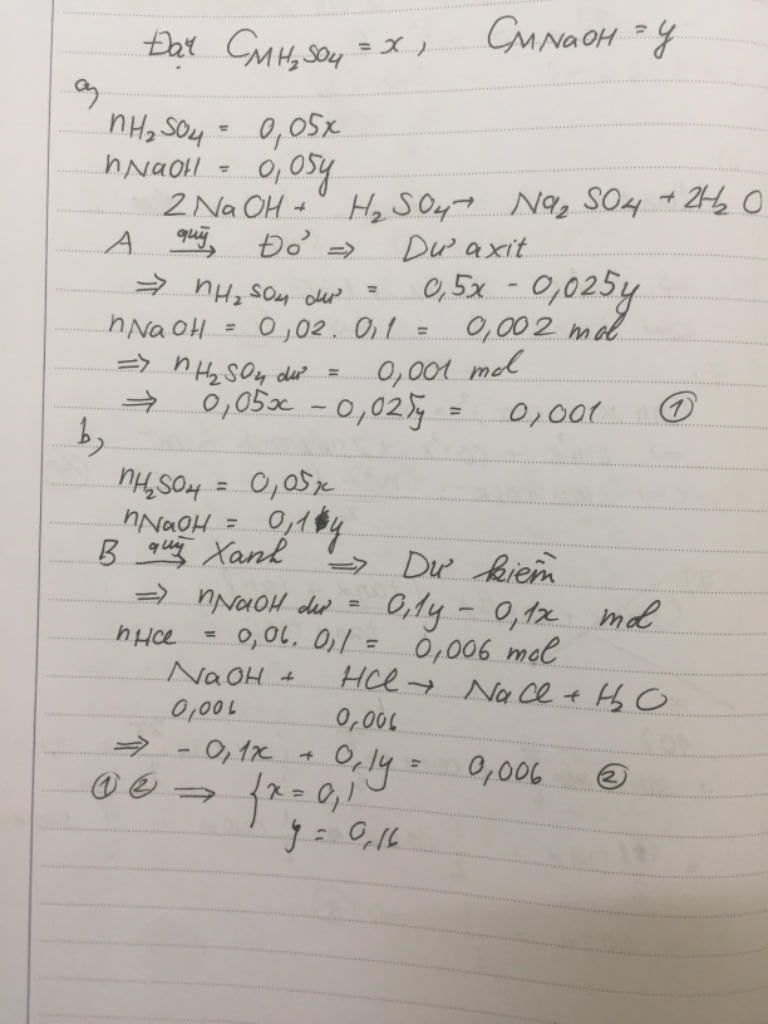 Đặt CM H2SO4 = x, CM NaOH = y
a,
nH2SO4 = 0,05x
nNaOH = 0,05y
2NaOH + H2SO4 → Na2SO4 + 2H2O
A quỳ→ Đỏ ⇒ Dư axit
⇒ nH2SO4 dư = 0,5x - 0,025y
nNaOH = 0,02. 0,1 = 0,002 mol
⇒ nH2SO4 dư = 0,001 mol
⇒ 0,05x - 0,025y = 0,001 ①
b,
nH2SO4 = 0,05x
nNaOH = 0,1y
B quỳ→ Xanh ⇒ Dư kiềm
⇒ nNaOH dư = 0,1y - 0,1x mol
nHCl = 0,06. 0,1 = 0,006 mol
NaOH + HCl → NaCl + H2O
0,006 0,006
⇒ - 0,1x + 0,1y = 0,006 ②
① ② ⇒ { x = 0,1
y = 0,16